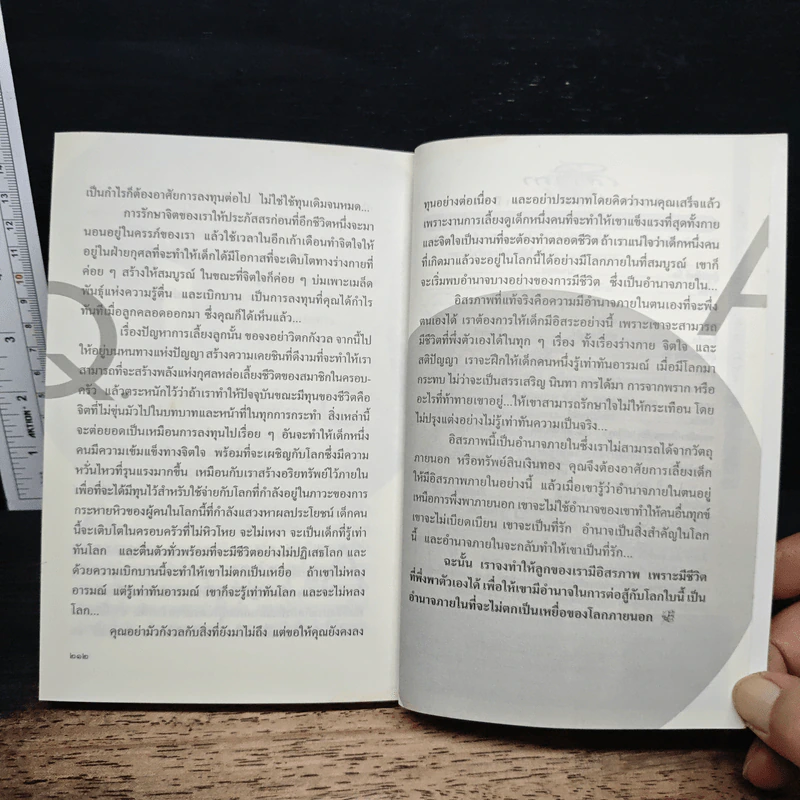 เป็นกำไรก็ต้องอาศัยการลงทุนต่อไป ไม่ใช่ใช้ทุนเดิมจนหมด...
การรักษาจิตของเราให้ประภัสสรก่อนที่อีกชีวิตหนึ่งจะมา
นอนอยู่ในครรภ์ของเรา แล้วใช้เวลาในอีกเก้าเดือนทำจิตใจให้
อยู่ในฝ่ายกุศลที่จะทำให้เด็กได้มีโอกาสที่จะเติบโตทางร่างกายที่
ค่อย ๆ สร้างให้สมบูรณ์ ในขณะที่จิตใจก็ค่อย ๆ บ่มเพาะเมล็ด
พันธุ์แห่งความรู้ตื่น และเบิกบาน เป็นการลงทุนที่คุณได้กำไร
ทันทีเมื่อลูกคลอดออกมา ซึ่งคุณก็ได้เห็นแล้ว...
เรื่องปัญหาการเลี้ยงลูกนั้น ขอจงอย่าวิตกกังวล จากนี้ไป
ให้อยู่บนหนทางแห่งปัญญา สร้างความเคยชินที่ดีงามที่จะทำให้เรา
สามารถที่จะสร้างพลังแห่งกุศลหล่อเลี้ยงชีวิตของสมาชิกในครอบ-
ครัว แล้วตระหนักไว้ว่าถ้าเราทำให้ปัจจุบันขณะมีทุนของชีวิตคือ
จิตที่ไม่ขุ่นมัวไปในบทบาทและหน้าที่ในทุกการกระทำ สิ่งเหล่านี้
จะต่อยอดเป็นเหมือนการลงทุนไปเรื่อย ๆ อันจะทำให้เด็กหนึ่ง
คนมีความเข้มแข็งทางจิตใจ พร้อมที่จะเผชิญกับโลกซึ่งมีความ
หวั่นไหวที่รุนแรงมากขึ้น เหมือนกับเราสร้างอริยทรัพย์ไว้ภายใน
เพื่อที่จะได้มีทุนไว้สำหรับใช้จ่ายกับโลกที่กำลังอยู่ในภาวะของการ
กระหายหิวของผู้คนในโลกนี้ที่กำลังแสวงหาผลประโยชน์ เด็กคน
นี้จะเติบโตในครอบครัวที่ไม่หิวโหย จะไม่เหงา จะเป็นเด็กที่รู้เท่า
ทันโลก และตื่นตัวทั่วพร้อมที่จะมีชีวิตอย่างไม่ปฏิเสธโลก และ
ด้วยความเบิกบานนี้จะทำให้เขาไม่ตกเป็นเหยื่อ ถ้าเขาไม่หลง
อารมณ์ แต่รู้เท่าทันอารมณ์ เขาก็จะรู้เท่าทันโลก และจะไม่หลง
โลก...
คุณอย่ามัวกังวลกับสิ่งที่ยังมาไม่ถึง แต่ขอให้คุณยังคงลง
๒๑๒
ทุนอย่างต่อเนื่อง และอย่าประมาทโดยคิดว่างานคุณเสร็จแล้ว
เพราะงานการเลี้ยงดูเด็กหนึ่งคนที่จะทำให้เขาแข็งแรงที่สุดทั้งกาย
และจิตใจเป็นงานที่จะต้องทำตลอดชีวิต ถ้าเราแน่ใจว่าเด็กหนึ่งคน
ที่เกิดมาแล้วจะอยู่ในโลกนี้ได้อย่างมีโลกภายในที่สมบูรณ์ เขาก็
จะเริ่มพบอำนาจบางอย่างของการมีชีวิต ซึ่งเป็นอำนาจภายใน...
อิสรภาพที่แท้จริงคือความมีอำนาจภายในตนเองที่จะพึ่ง
ตนเองได้ เราต้องการให้เด็กมีอิสระอย่างนี้ เพราะเขาจะสามารถ
มีชีวิตที่พึ่งตัวเองได้ในทุก ๆ เรื่อง ทั้งเรื่องร่างกาย จิตใจ และ
สติปัญญา เราจะฝึกให้เด็กคนหนึ่งรู้เท่าทันอารมณ์ เมื่อมีโลกมา
กระทบ ไม่ว่าจะเป็นสรรเสริญ นินทา การได้มา การจากพราก หรือ
อะไรที่ท้าทายเขาอยู่...ให้เขาสามารถรักษาใจไม่ให้กระเทือน โดย
ไม่ปรุงแต่งอย่างไม่รู้เท่าทันความเป็นจริง...
อิสรภาพนี้เป็นอำนาจภายในซึ่งเราไม่สามารถได้จากวัตถุ
ภายนอก หรือทรัพย์สินเงินทอง คุณจึงต้องอาศัยการเลี้ยงเด็ก
ให้มีอิสรภาพภายในอย่างนี้ แล้วเมื่อเขารู้ว่าอำนาจภายในตนอยู่
เหนือการพึ่งพาภายนอก เขาจะไม่ใช้อำนาจของเขาทำให้คนอื่นทุกข์
เขาจะไม่เบียดเบียน เขาจะเป็นที่รัก อำนาจเป็นสิ่งสำคัญในโลก
นี้ และอำนาจภายในจะกลับทำให้เขาเป็นที่รัก...
ฉะนั้น เราจงทำให้ลูกของเรามีอิสรภาพ เพราะมีชีวิต
ที่พึ่งพาตัวเองได้ เพื่อให้เขามีอำนาจในการต่อสู้กับโลกใบนี้ เป็น
อำนาจภายในที่จะไม่ตกเป็นเหยื่อของโลกภายนอก
Q
A
1
2
3